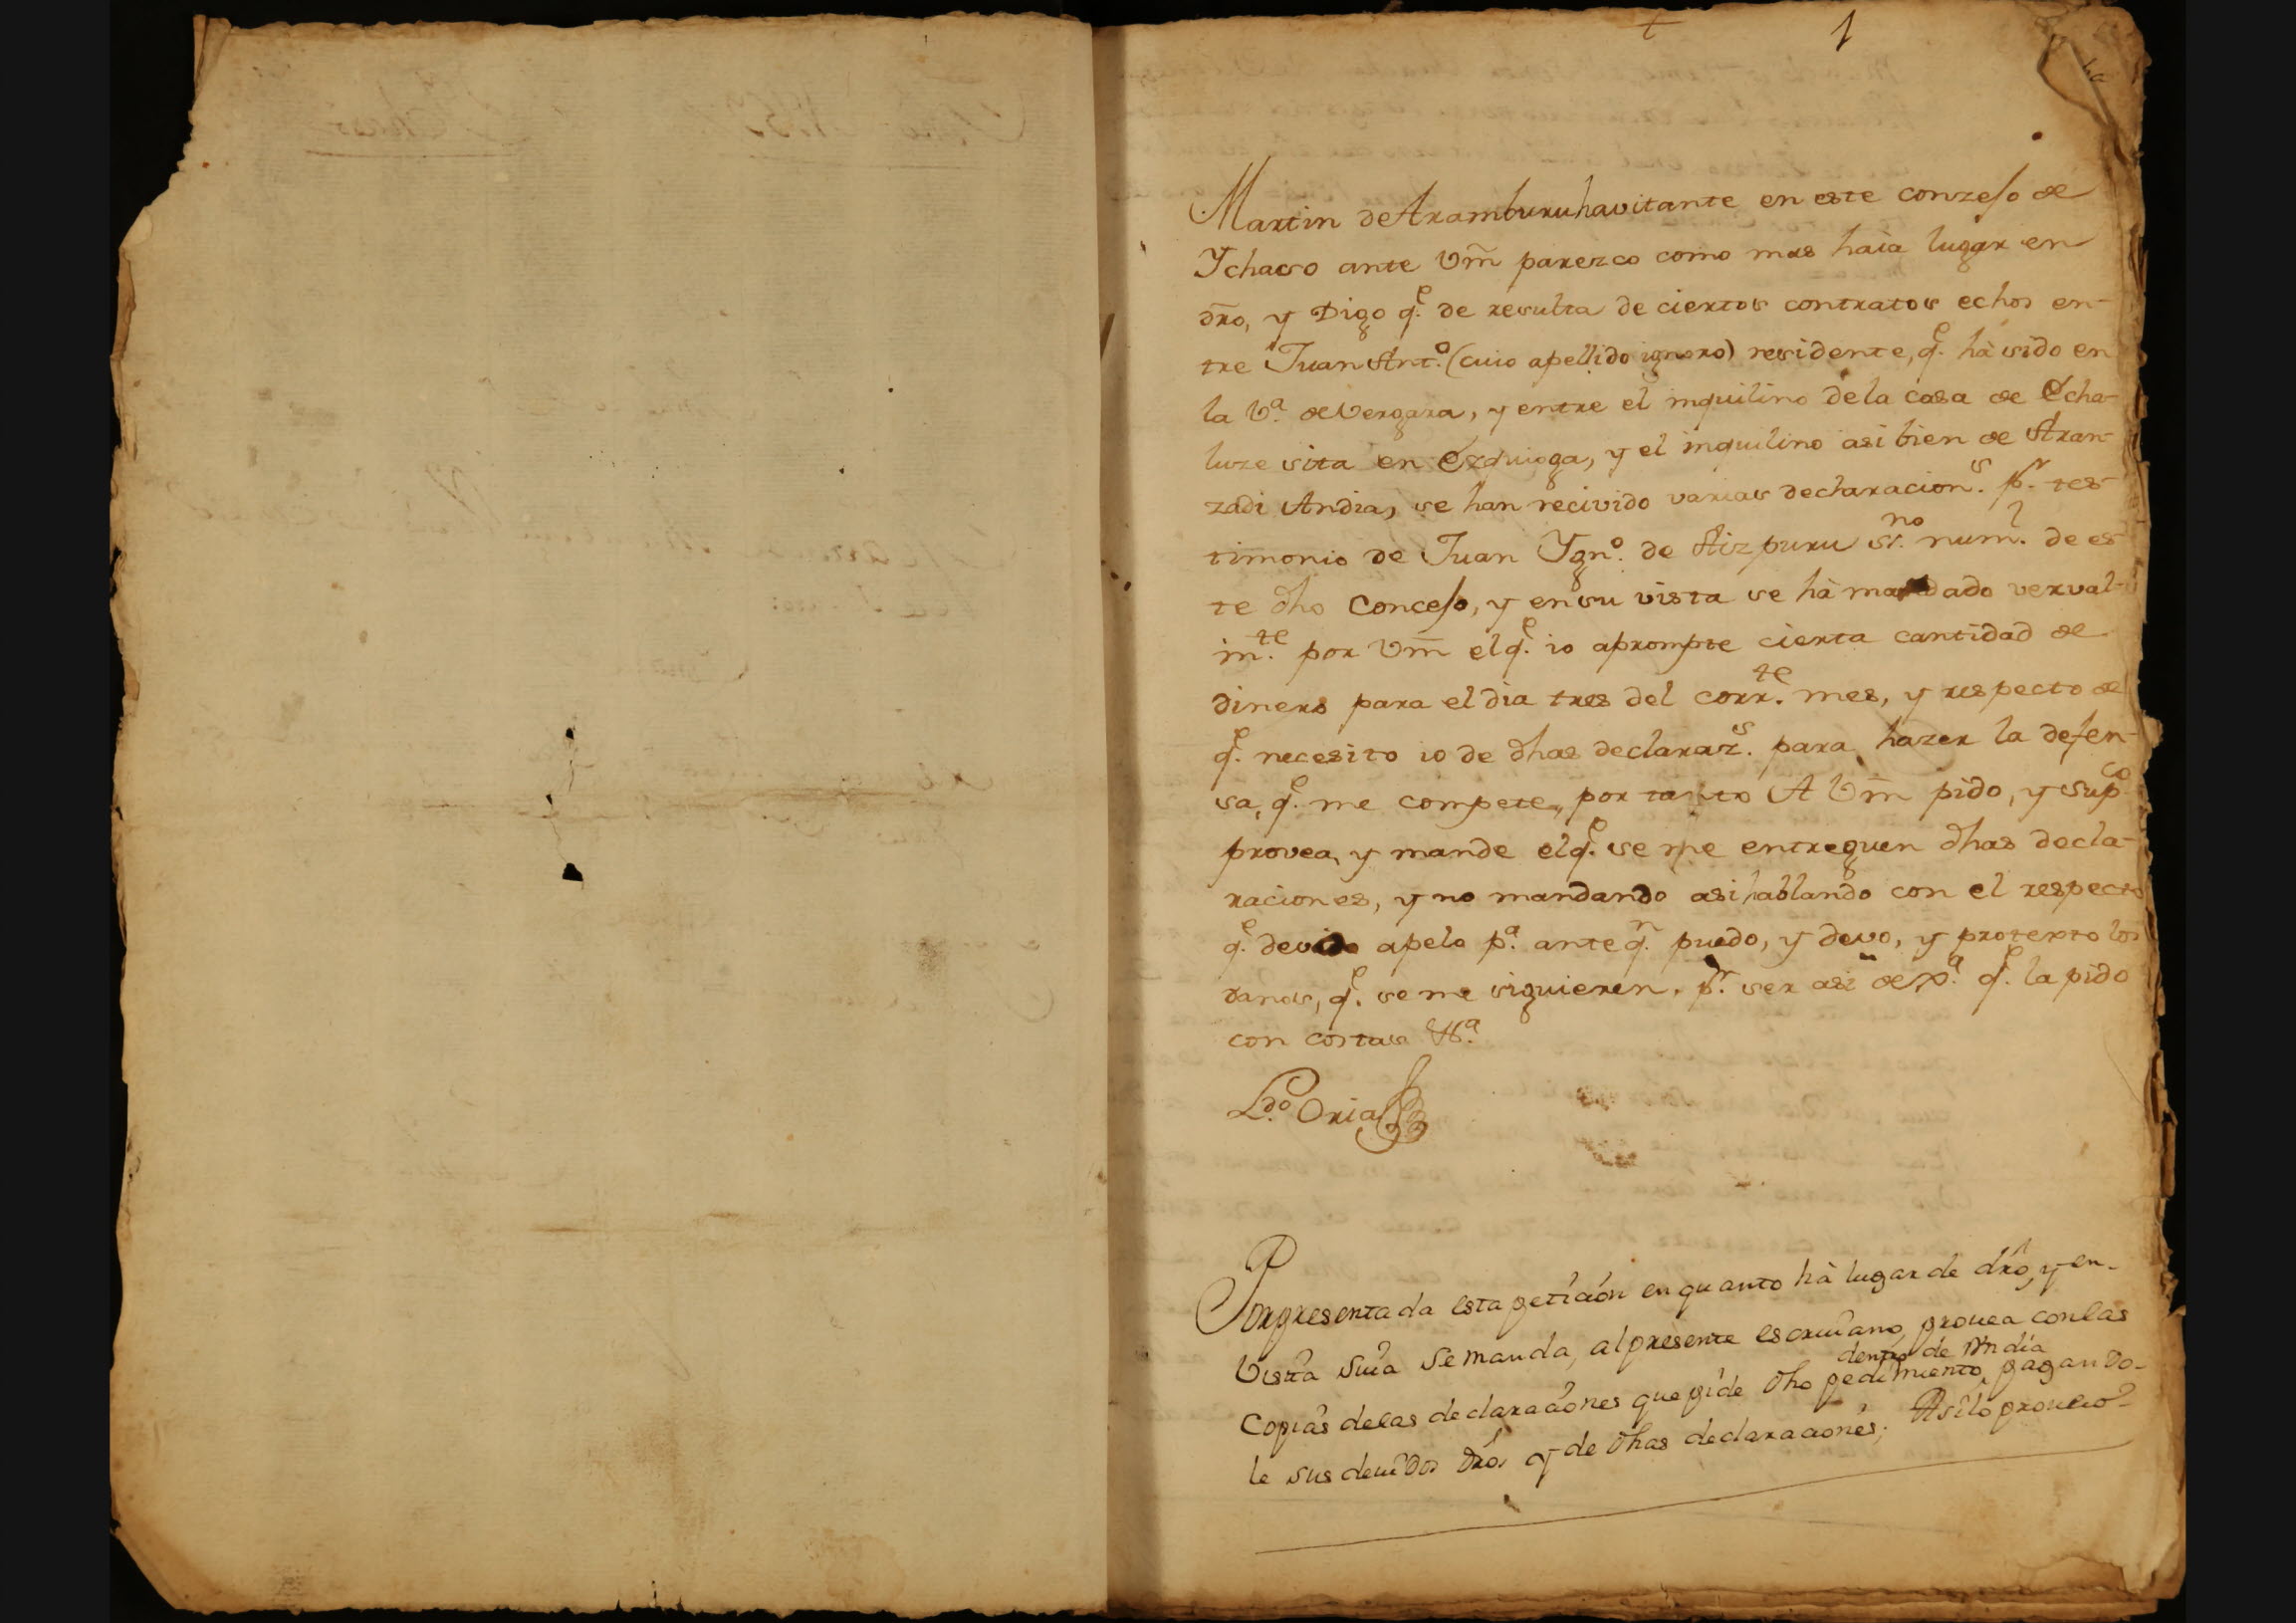 + 1
Martin de Aramburu havitante en este conzeso de
Ychaso ante Vm̃ parezco como mas haia lugar en
dr̃o, y Digo q.e de resulta de ciertos contratos echos en-
tre Juan Ant.o (cuio apellido ignoro) residente, q.e hà sido en
la V.a de Vergara, y entre el inquilino de la casa de Echa-
luze sita en Ezquioga, y el inquilino asi bien de Aran-
zadi Andia, se han recivido varias declaracion.s p.r tes-
timonio de Juan Ygn.o de Aizpuru sr.no num.l de es-
te dho Conceso, y en su vista se hà mandado verval-
m.te por Vm̃ el q.e io aprompte cierta cantidad de
dinero para el dia tres del corr.te mes, y respecto de
q.e necesito io de dhas declaraz.s para hazer la defen-
sa, q.e me compete, por tanto A Vm̃ pido, y sup.co
provea, y mande el q.e se me entreguen dhas decla-
raciones, y no mandando asi hablando con el respecto
q.e devido apelo p.a ante q.n puedo, y devo, y protexto los
danos, q.e se me siguieren. p.r ser asi de q.e la pido
con costas
L.do Oria
Por presentada esta peticion en quanto hà lugar de dr̃o, y en-
Vista Suia se manda, al presente escriuano, prouea con las
dentro de Vn dia
Copias de las declaraciones que pide dho pedimiento, pagando-
le sus deuidos dr̃os y de dhas declaraciones; Asi lo proueio